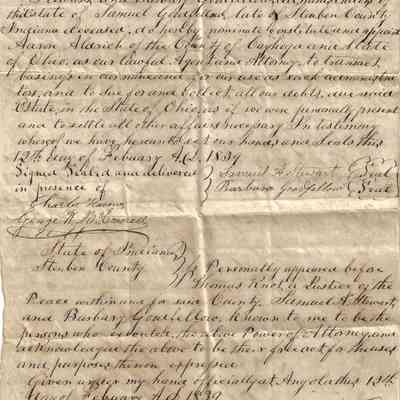 the State of Samuel Goodfellow, late of Steuben County
Indiana deceased, do hereby nominate constitute and appoint
Aaron Aldrich of the County of Cayhoga and State
of Ohio, as our lawful Agent and Attorney, to transact
business in our name and for our use as such administra
tors, and to sue for and collect all our debts, due said
Estate, in the State of Ohio, as if we were personally present
and to settle all other affairs necessary In testimony
whereof we have hereunto set our hands and seals this
12th day of Febuary A.D. 1839
Signed Sealed and delivered } Samuel A Stewart Seal
in presence of } Barbara Goodfellow Seal
George W.
State of Indiana }
Steuben County } Personally appeared before
Thomas Knot, a Justice of the
Peace within and for said County, Samuel A. Stewart,
and Barbary Goodfellow, Known to me to be the
persons who executed the above Power of Attorney, and
acknowledge the above to be their for the uses
and purposes therein expressed
Given under my hand officially at Angola this 12th
day of Febuary A.D. 1839